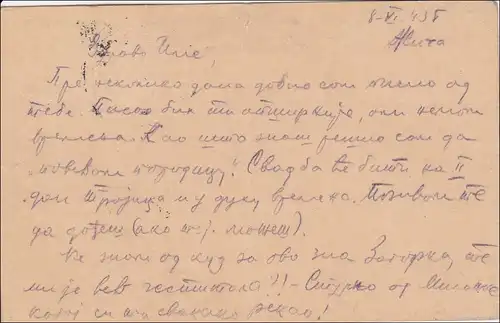 8-VI 43 г
Жича
Здраво Иле,
Пре неколико дана добио сам писмо од
тебе. Писао бих ти опширније, али немам
времена. Као што знаш решио сам да
„поведем породицу". Свадба ће бити на II
дан Тројица и у духу времена. Позивам те
да дођеш (ако т.ј. можеш).
Не знам од куд за ово зна Загорка, те
ми је већ честитала?! – Сигурно од
којој си ти свакако рекао!